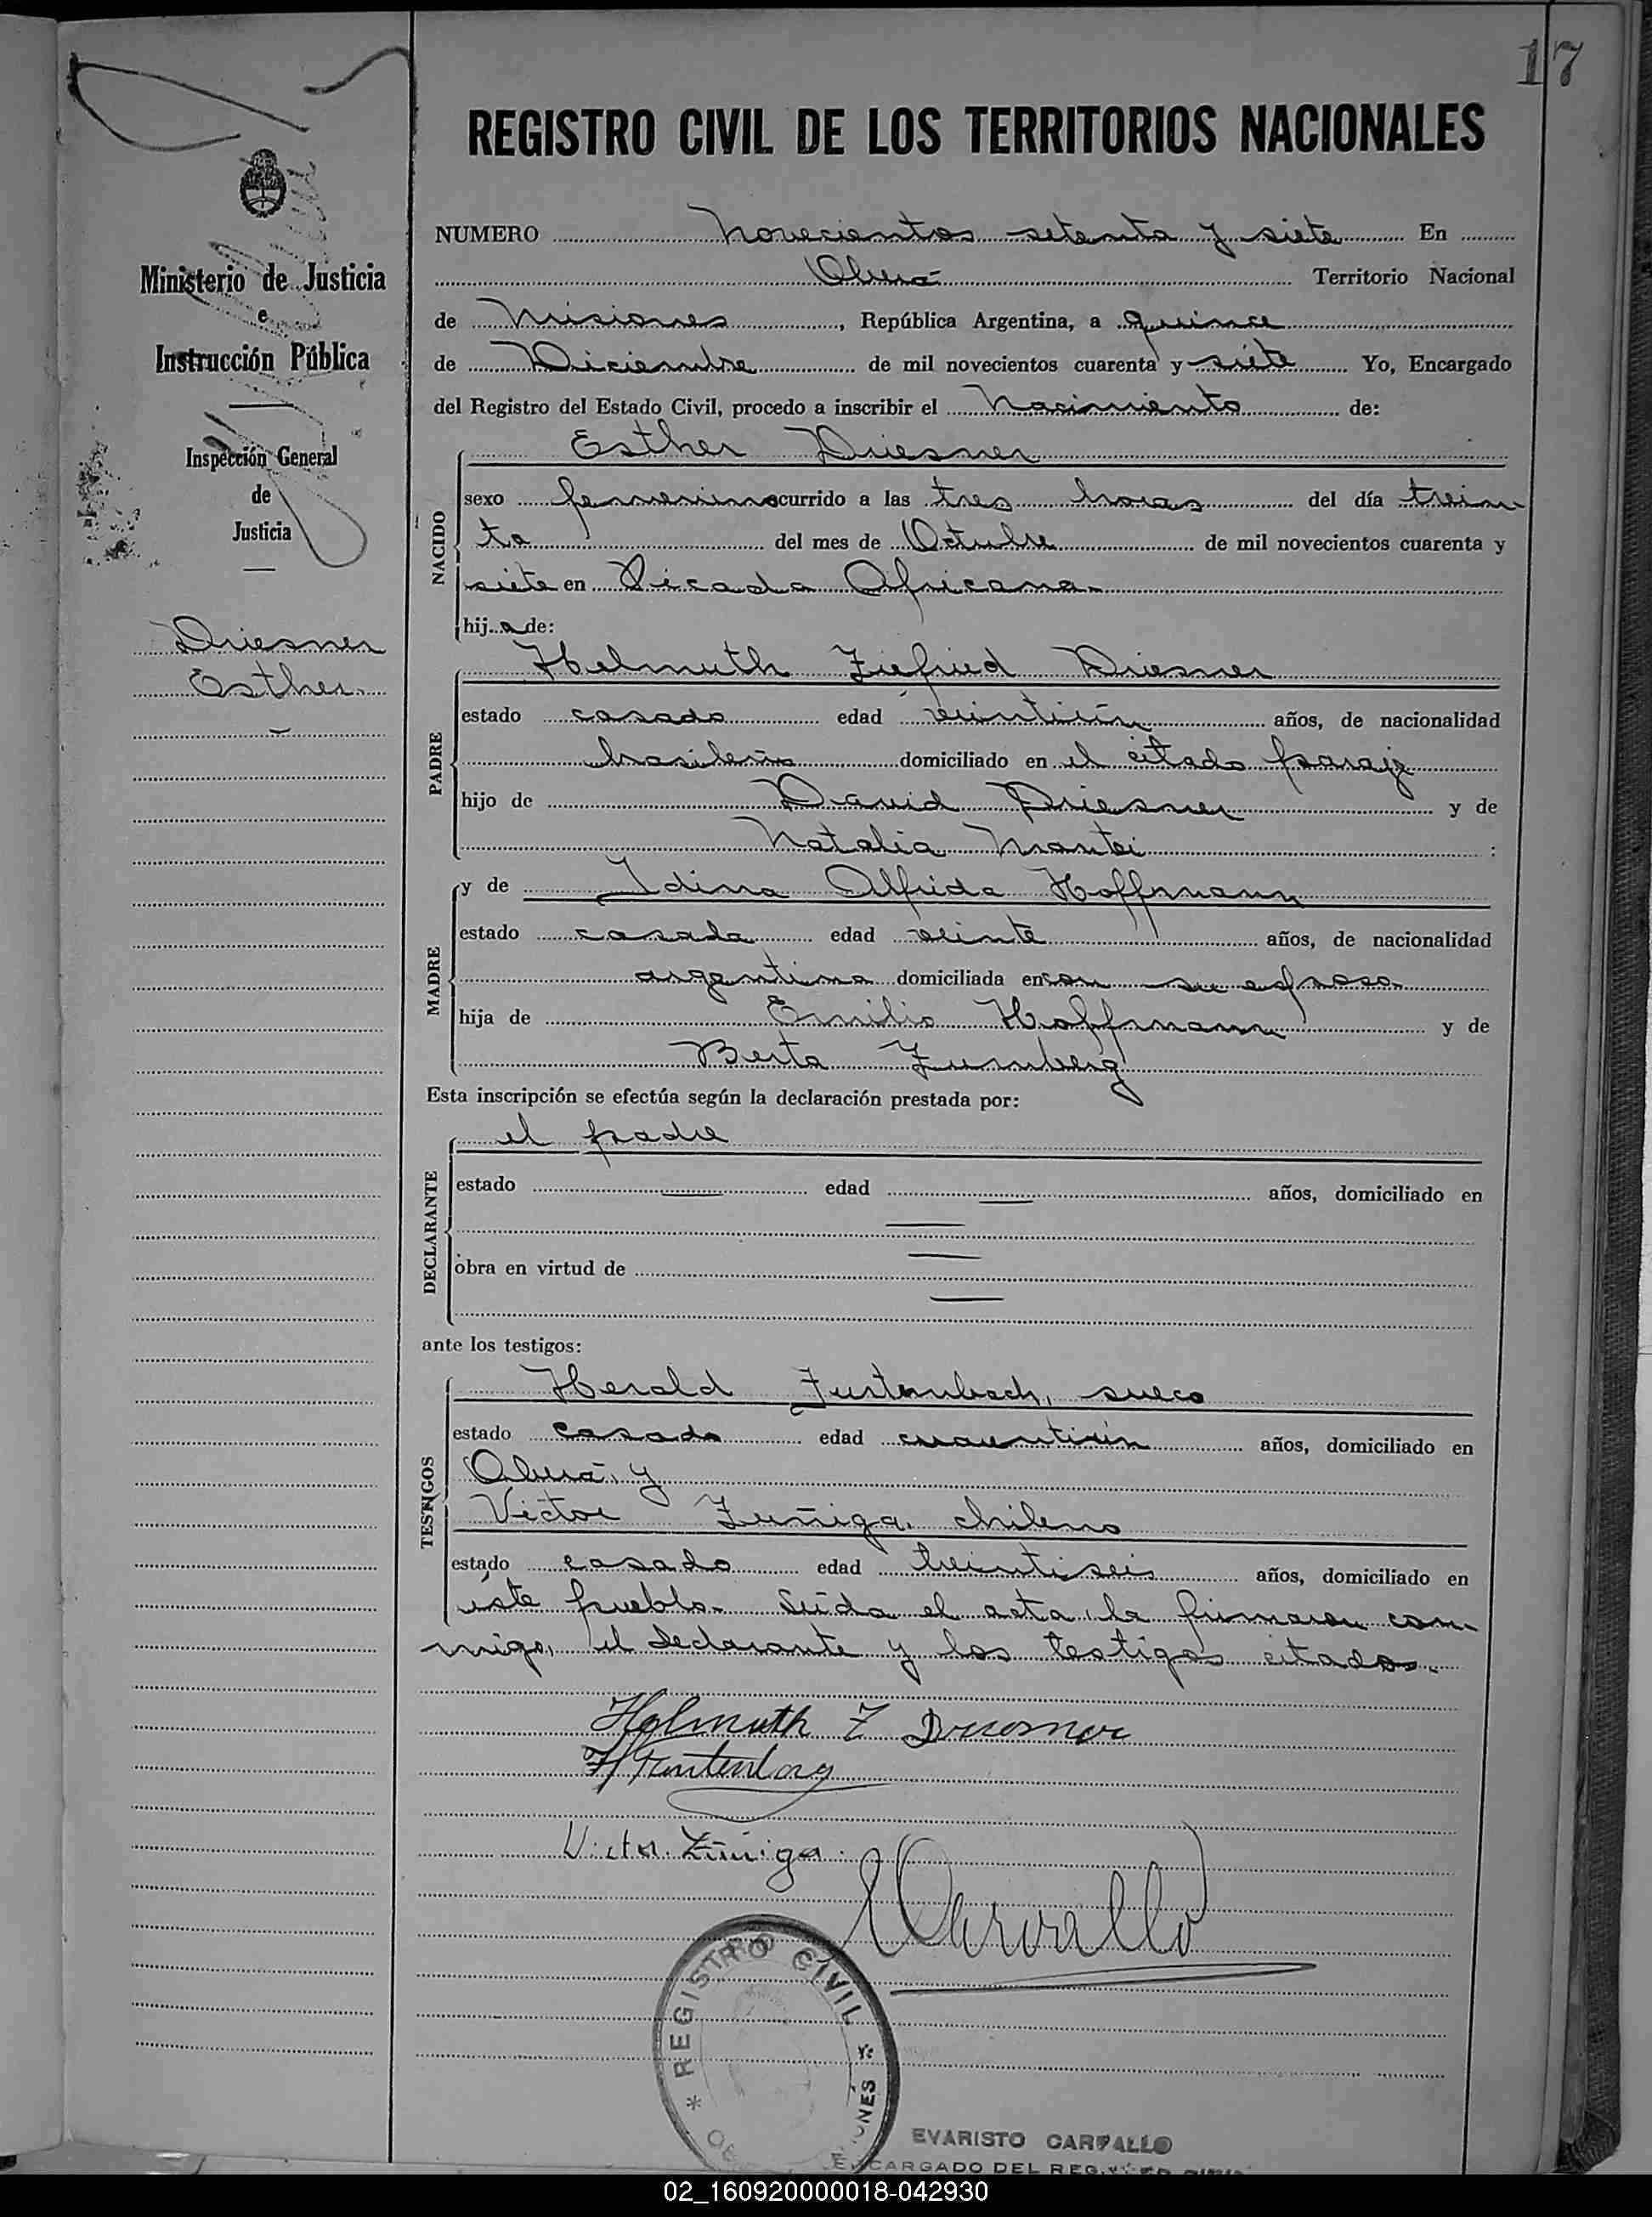 17
REGISTRO CIVIL DE LOS TERRITORIOS NACIONALES
Ministerio de Justicia
e
Instrucción Pública
Inspección General
de
Justicia
Driesner
Esther
NUMERO Novecientos setenta y siete En
Oberá Territorio Nacional
de Misiones, República Argentina, a quince
de Diciembre de mil novecientos cuarenta y siete Yo, Encargado
del Registro del Estado Civil, procedo a inscribir el Nacimiento de:
NACIDO
Esther Driesner
sexo femenino ocurrido a las tres horas del día trein
ta del mes de Octubre de mil novecientos cuarenta y
siete en Picada Africana
hija de:
PADRE
Helmuth Ziefried Driesner
estado casado edad veintiún años, de nacionalidad
brasileño domiciliado en el citado paraje
hijo de David Driesner y de
Natalia Mantei
MADRE
y de Idina Alfrida Hoffmann
estado casada edad veinte años, de nacionalidad
argentina domiciliada en con su esposo
hija de Emilio Hoffmann y de
Berta Zumberg
Esta inscripción se efectúa según la declaración prestada por:
DECLARANTE
el padre
estado edad años, domiciliado en
obra en virtud de
ante los testigos:
TESTIGOS
Herald Furstenbach, sueco
estado casado edad cuarentiún años, domiciliado en
Oberá, y
Victor Zuñiga, chileno
estado casado edad treintiseis años, domiciliado en
éste pueblo. Leída el acta, la firmaron con
migo, el declarante y los testigos citados.
Helmuth Z Driesner
Victor Zúñiga
ECarvallo
REGISTRO CIVIL
EVARISTO CARVALLO
ENCARGADO DEL REG.
02_160920000018-042930